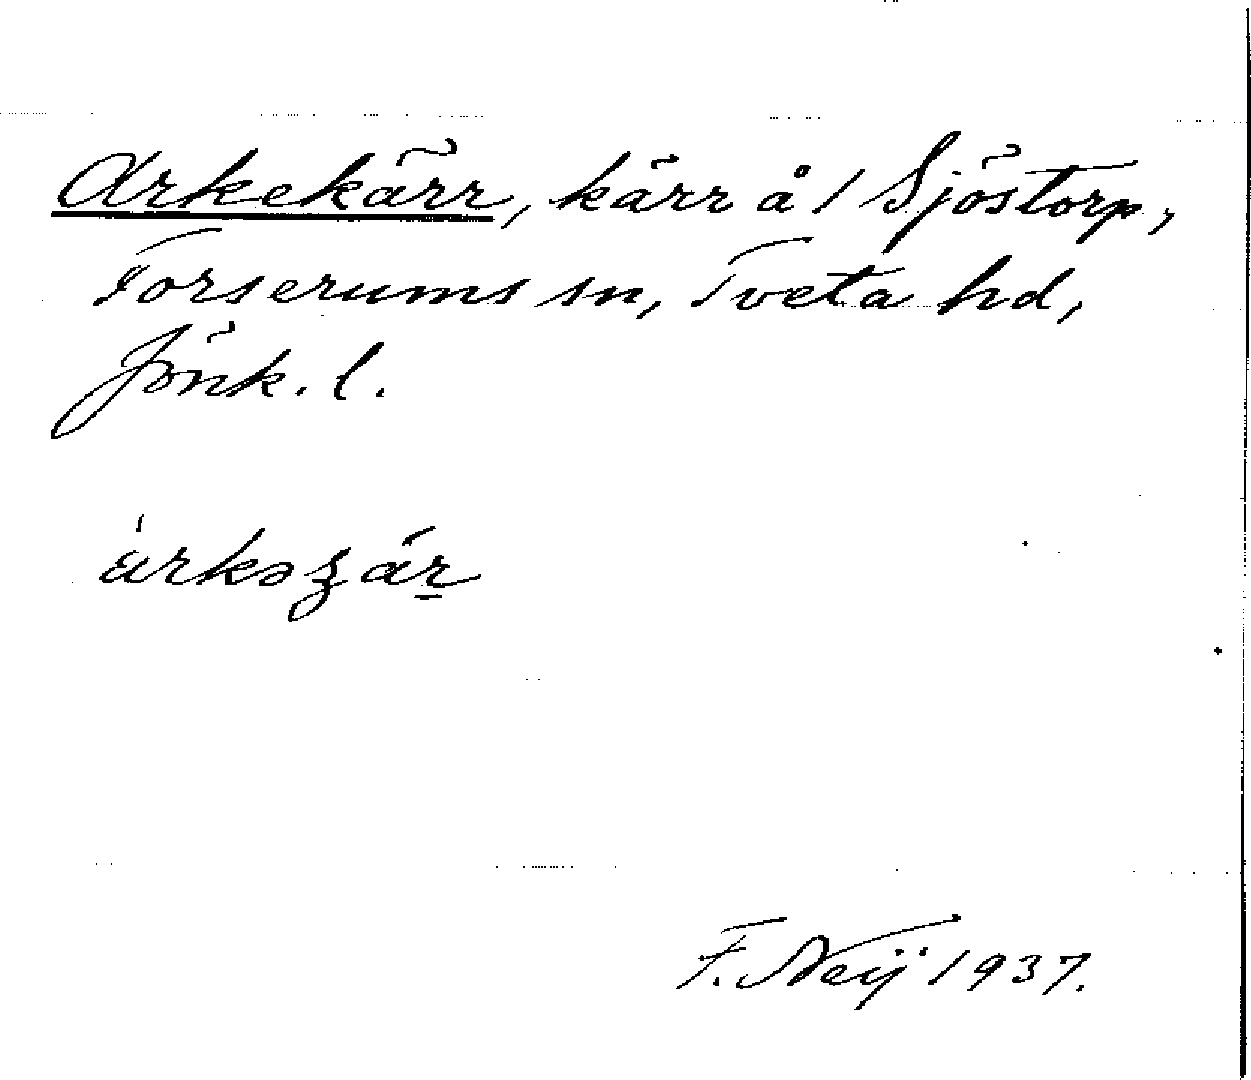 Arkekärr, kärr å / Sjöstorp,
Forserums sn, Tveta hd,
Jönk. l.
F. Neij 1937.